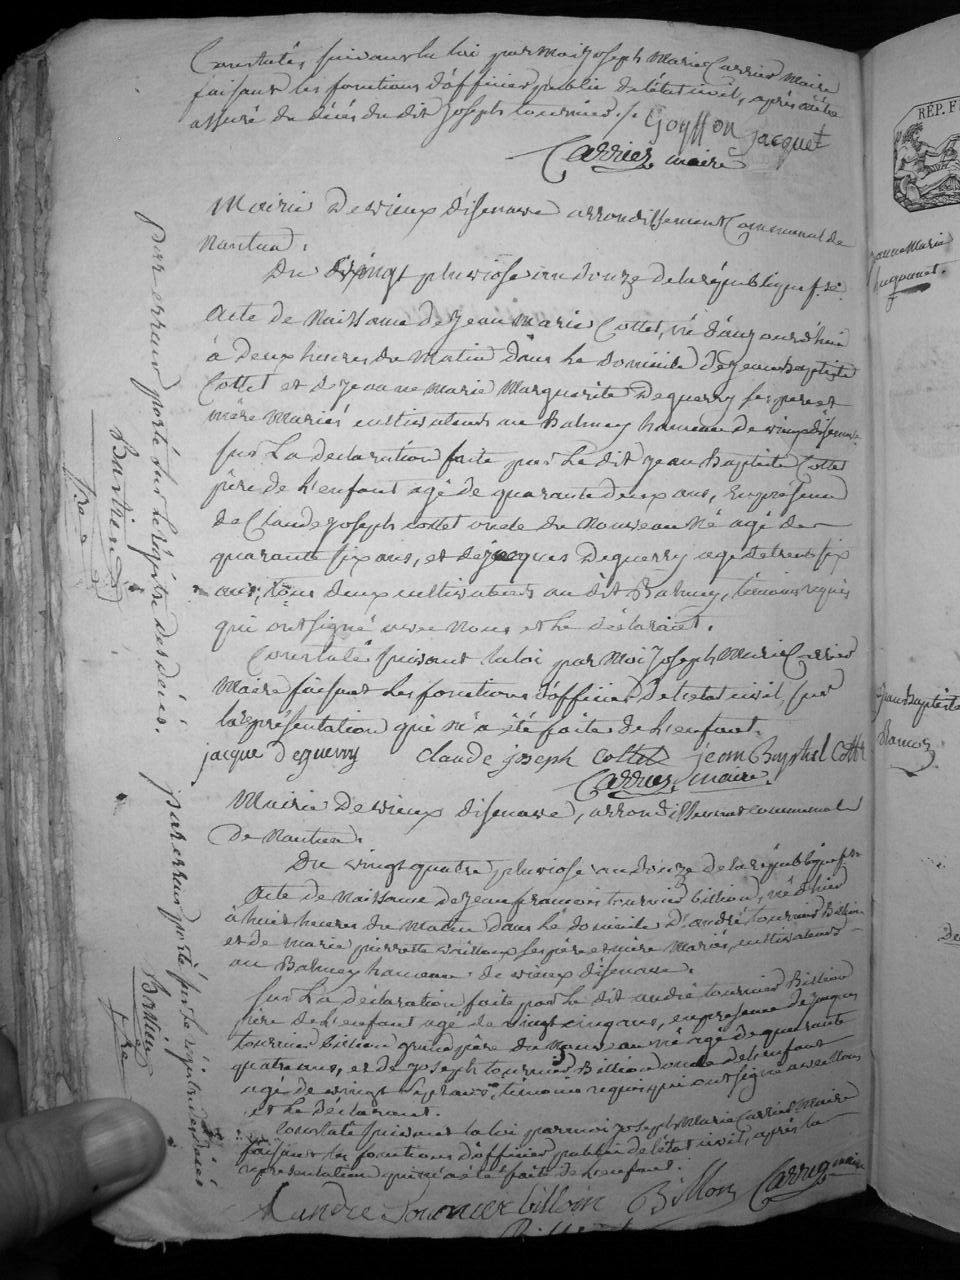 Constatés suivant la loi par moi Joseph Marie Carrier maire
faisant les fonctions d'officier public de l'état civil, après m'être
assuré du décès du dit Joseph tournier ./.
Goyffon jacquet
Carrier maire
Mairie de vieux d'isenave arrondissement Communal de
Nantua.
Du vingt pluviose an douze de la république f.se
Acte de Naissance de jean Marie Cottet, né d'aujourd'hui
à deux heures du Matin dans Le domicile de jean Baptiste
Cottet et de jeanne marie Marguerite Deguerry ses pere et
mère Mariés cultivateurs au Balmey hameau de vieux d'isenave
sur La déclaration faite par Le dit jean Baptiste Cottet
père de L'enfant agé de quarante deux ans, En présence
de Claude joseph cottet oncle du Nouveau Né agé de
quarante six ans, et de jacques Deguerry agé de trente six
ans, tous deux cultivateurs au dit Balmey, témoins requis
qui ont signé avec Nous et Le déclarant.
Constaté suivant la loi par Moi Joseph Marie Carrier
Maire faisant Les fonctions d'officier de l'état civil, sur
la représentation qui m'a été faite de L'enfant.
jacque deguerry claude joseph cottet jean Baptist Cottet
Carrier maire.
Mairie de vieux d'isenave, arrondissement communal
de Nantua.
Du vingt quatre pluviose an douze de la république f.se
Acte de Naissance de jean francois tournier billion, né d'hier
à huit heures du Matin dans Le domicile d'andré tournier Billion
et de marie pierrette ses père et mère Mariés, cultivateurs
au Balmey hameau de vieux d'isenave.
Sur La déclaration faite par Le dit andré tournier Billion
père de L'enfant agé de vingt cinq ans, en présence de jacques
tournier billion grand père du Nouveau né agé de quarante
quatre ans, et de joseph tournier Billion oncle de L'enfant
agé de vingt sept ans, témoins requis qui ont signé avec Nous
et Le déclarant.
Constaté suivant la loi par moi joseph Marie Carrier Maire
faisant les fonctions d'officier public de l'état civil, après la
représentation qui m'a été faite de L'enfant.
andre tournier billion Billon Carrier maire
par erreur porté sur le registre des décès.
par erreur porté sur le registre des décès
RÉP. F
jeanne Marie
hugonnet.
Jean Baptiste